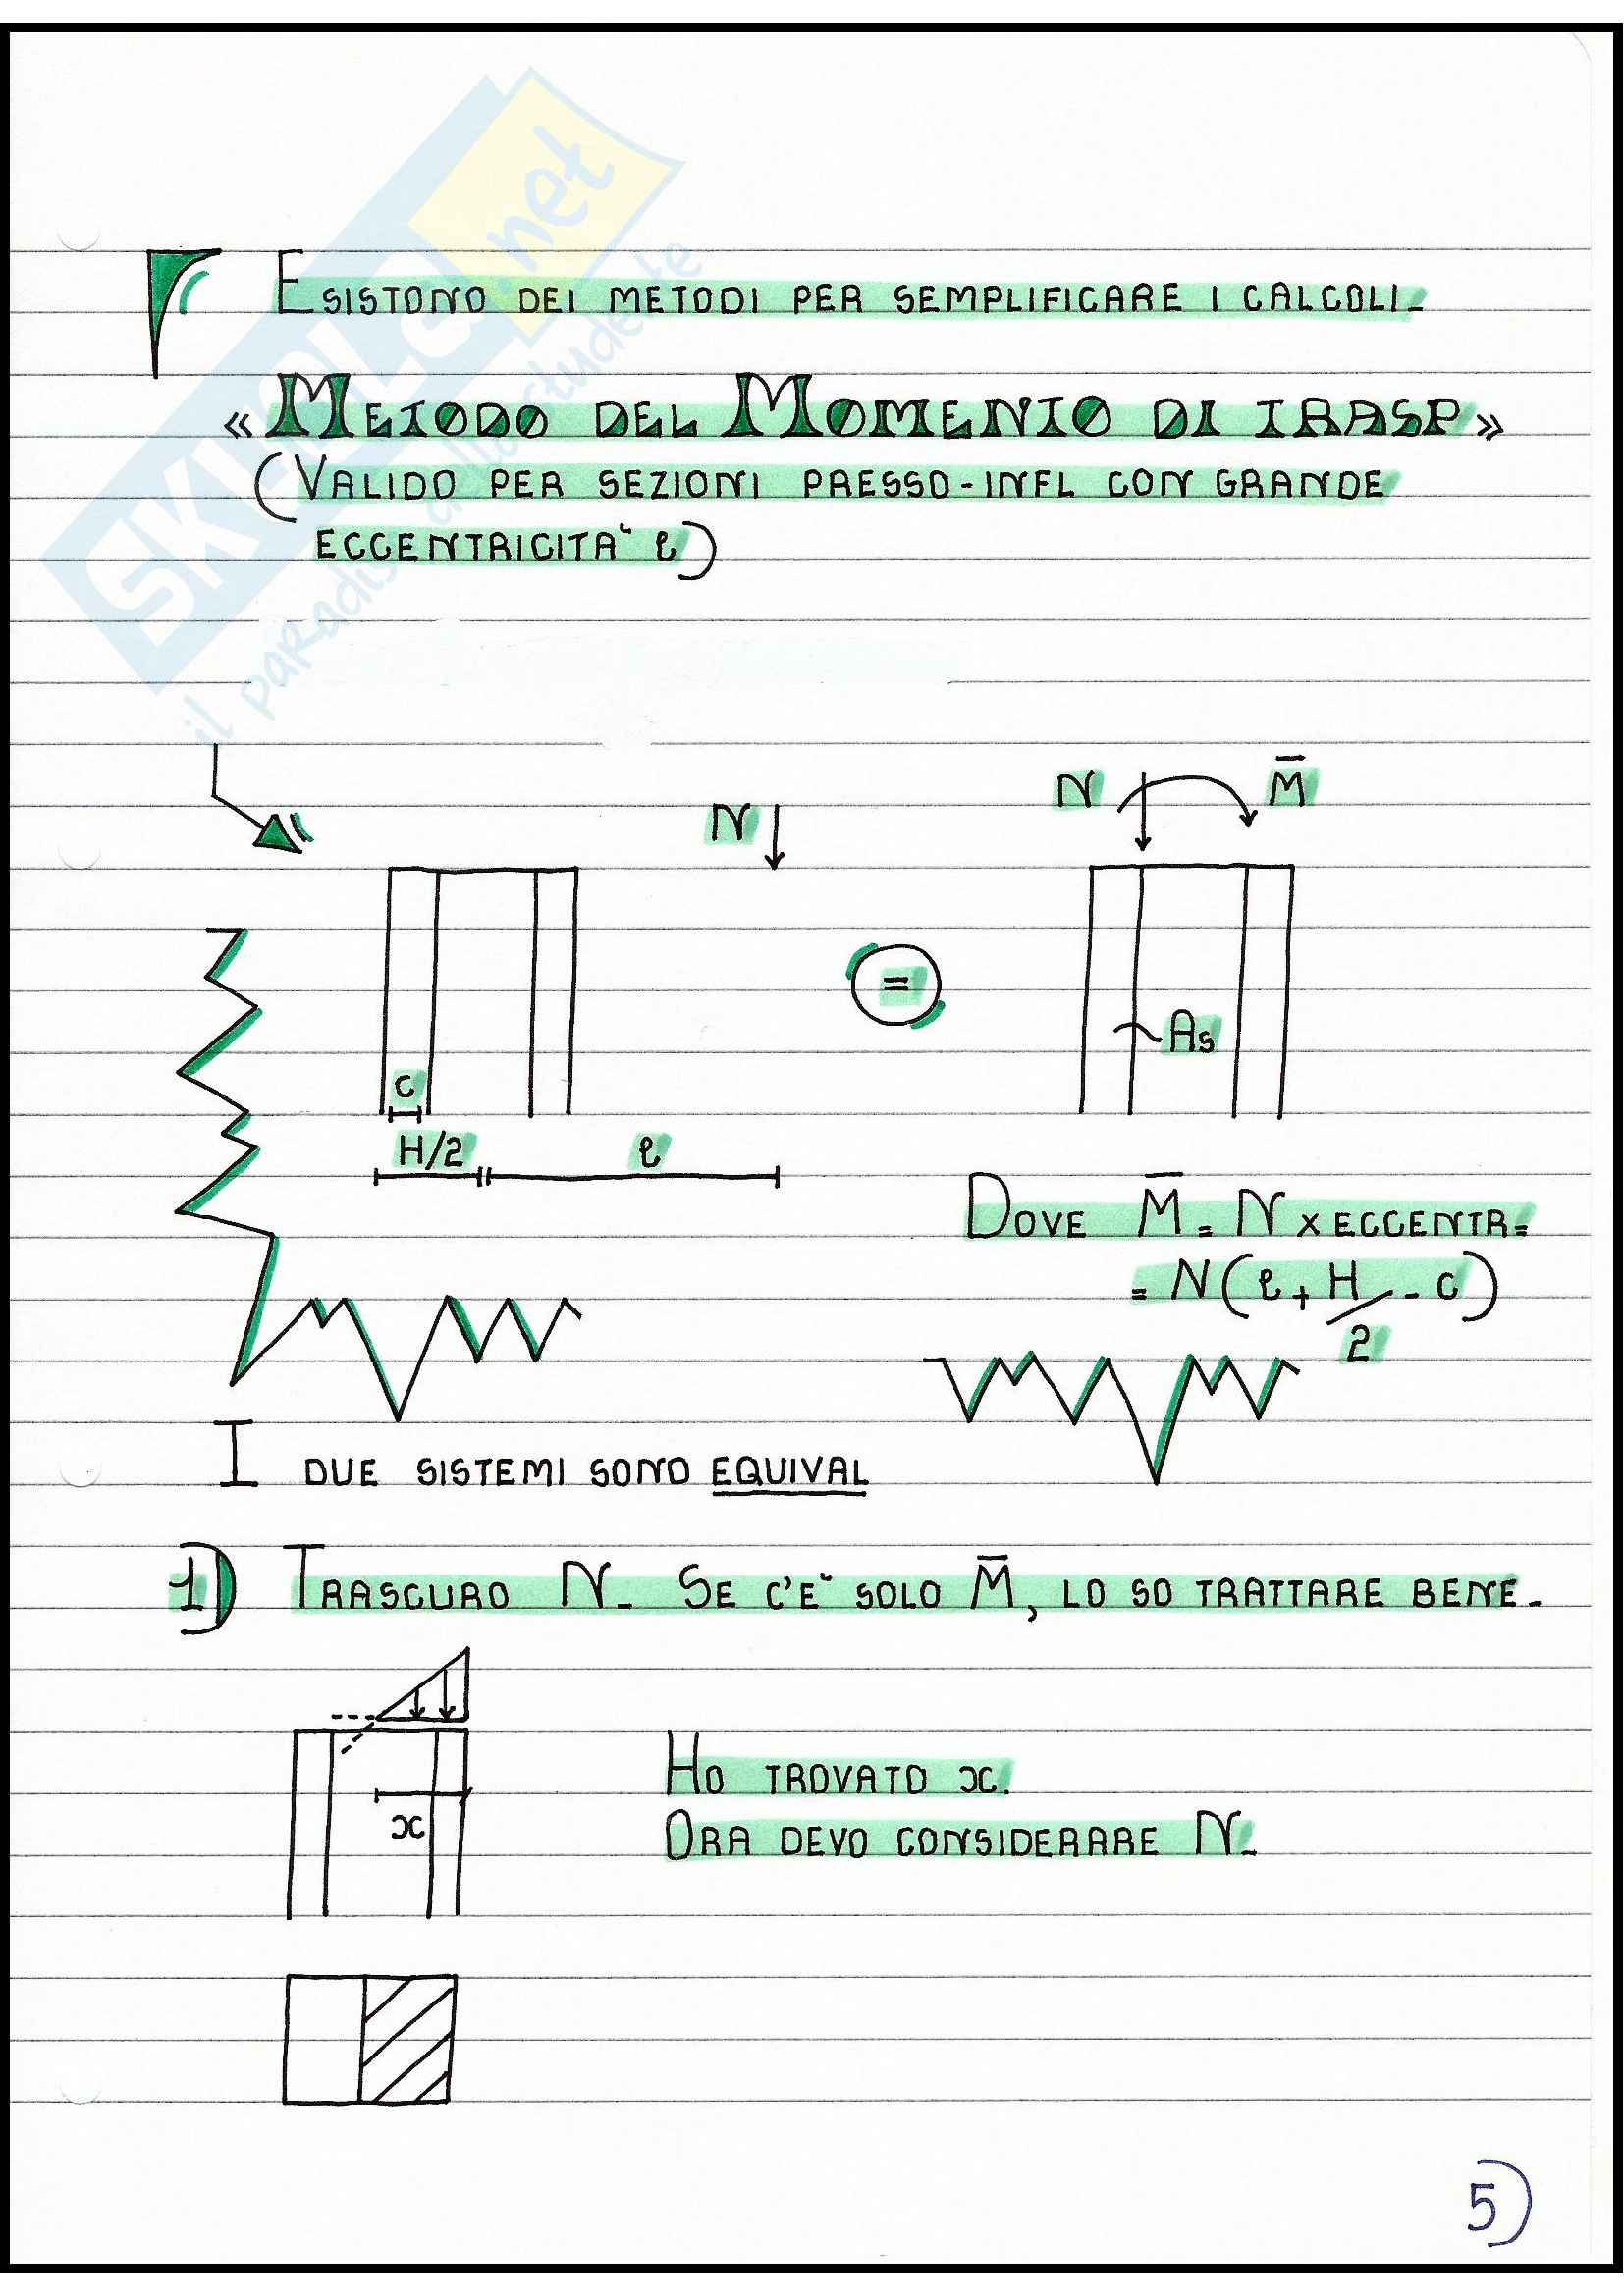 ESISTONO DEI METODI PER SEMPLIFICARE I CALCOLI.
«METODO DEL MOMENTO DI TRASP»
(VALIDO PER SEZIONI PRESSO-INFL CON GRANDE
ECCENTRICITA' e)
SKUOLA.net
il paradiso dello studente
N
N M̅
=
As
c
H/2 e
DOVE M̅ = N x ECCENTR =
= N(e + H/2 - c)
I DUE SISTEMI SONO EQUIVAL
1) TRASCURO N. SE C'E' SOLO M̅, LO SO TRATTARE BENE.
HO TROVATO x.
x
ORA DEVO CONSIDERARE N.
5)